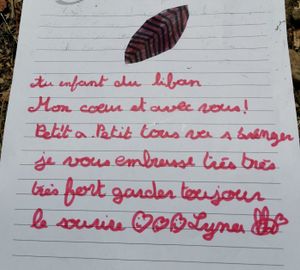 Au enfant du liban
Mon coeur et avec vous!
Petit a Petit tous va s arenger
je vous embresse trés trés
trés fort garder toujour
le sourire Lyna